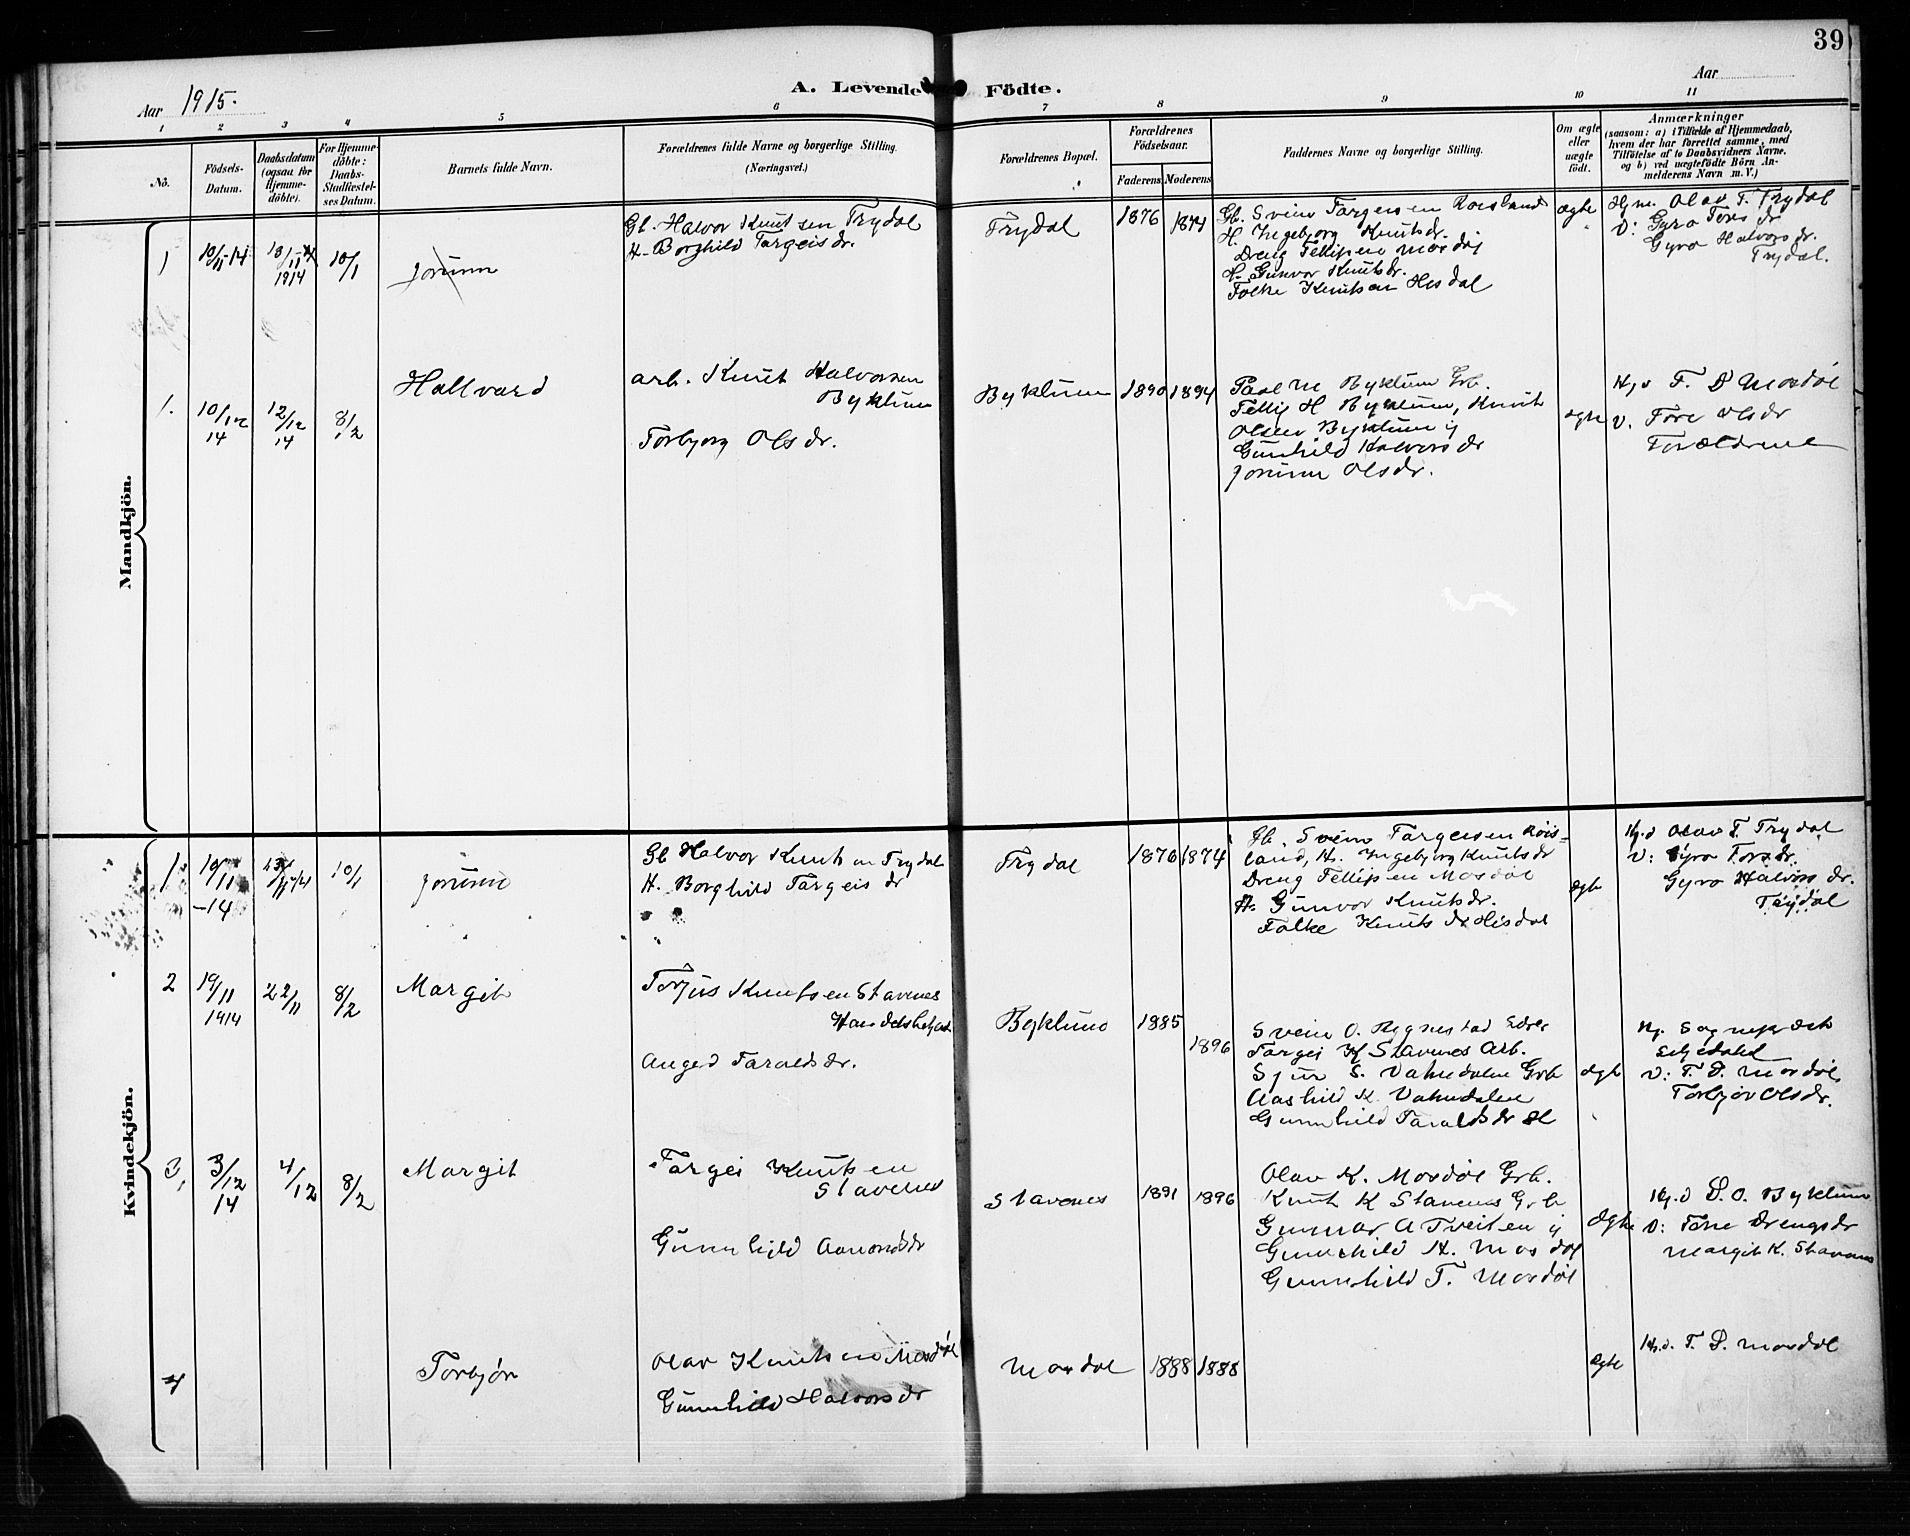 39
Aar 1915. A. Levende Födte. Aar
1 2 3 4 5 6 7 8 9 10 11
Nö.
Födsels-
Datum.
Daabsdatum
(ogsaa for
Hjemme-
döbte).
For Hjemme-
döbte:
Daabs-
Stadfæstel-
ses Datum.
Barnets fulde Navn.
Forældrenes fulde Navne og borgerlige Stilling.
(Næringsvei.)
Forældrenes Bopæl.
Forældrenes
Födselsaar.
Faderens Moderens
Faddernes Navne og borgerlige Stilling.
Om ægte
eller
uægte
födt.
Anmærkninger
(saasom: a) i Tilfælde af Hjemmedaab,
hvem der har forrettet samme, med
Tilföielse af to Daabsvidners Navne,
og b) ved uægtefödte Börn An-
melderens Navn m. V.)
Mandkjön.
1
10/11-14
1914
10/1
Jorunn
Gb. Halvor Knutsen Trydal
H. Borghild Targeisdr.
Trydal
1876
1874
Gb. Svein Targeisen Roisland
H. Ingebjorg Knutsdr.
Dreng Tellefsen Mosdøl
H. Gunvor Knutsdr.
Folke Knutsen Hisdal
ægte
Hjm. Olav T. Trydal
V: Gyro Toresdr
Gyro Halvorsdr.
Trydal.
1.
10/12
14
12/12
14
8/2
Hallvard
arb. Knut Halvorsen
Byklum
Torbjorg Olsdr.
Byklum
1890
1894
Paal M Byklum Grb.
Tellef H Byklum, Knut
Olsen Byklum
Gunhild Halvorsdr
Jorunn Olsdr.
ægte
Hj.d F. D Mosdøl
V. Tore Olsdr
Forældrene
Kvindekjön.
1.
10/11
-14
10/1
Jorunn
Gb Halvor Knutsen Trydal
H. Borghild Targeisdr
Trydal
1876
1874
Gb. Svein Targeisen Röis-
land, H. Ingebjorg Knutsdr
Dreng Tellefsen Mosdøl
H. Gunvor Knutsdr.
Folke Knutsdr Hisdal
ægte
Hj.d Olav T Trydal
V: Gyro Torsdr.
Gyro Halvorsdr.
Trydal
2
19/11
1914
22/11
8/2
Margit
Torjus Knutsen Stavenes
Handelsbetjent
Anged Taraldsdr.
Byklum
1885
1896
Svein O. Rygnestad
Targei K Stavenes Arb.
Sjur S. Vatnedalen Grb
Aashild K. Vatnedalen
Gunnhild Taraldsdr
ægte
Hj. Sogneprest
V: T. D. Mosdøl
Torbjør Olsdr.
3,
3/12
14
4/12
8/2
Margit
Targei Knutsen
Stavenes
Gunnhild Aanonsdr
Stavenes
1891
1896
Olav K. Mosdøl Grb.
Knut K Stavenes Grb
Gunnar A Tveiten
Gunnhild H. Mosdøl
Gunnhild T. Mosdøl
ægte
Hj.d D. O. Byklum
V: Tone Drengsdr
Margit K. Stavenes
4
Torbjør
Olav Knutsen Mosdøl
Gunnhild Halvorsdr
Mosdøl
1888
1888
ægte
Hj.d. T. D. Mosdøl